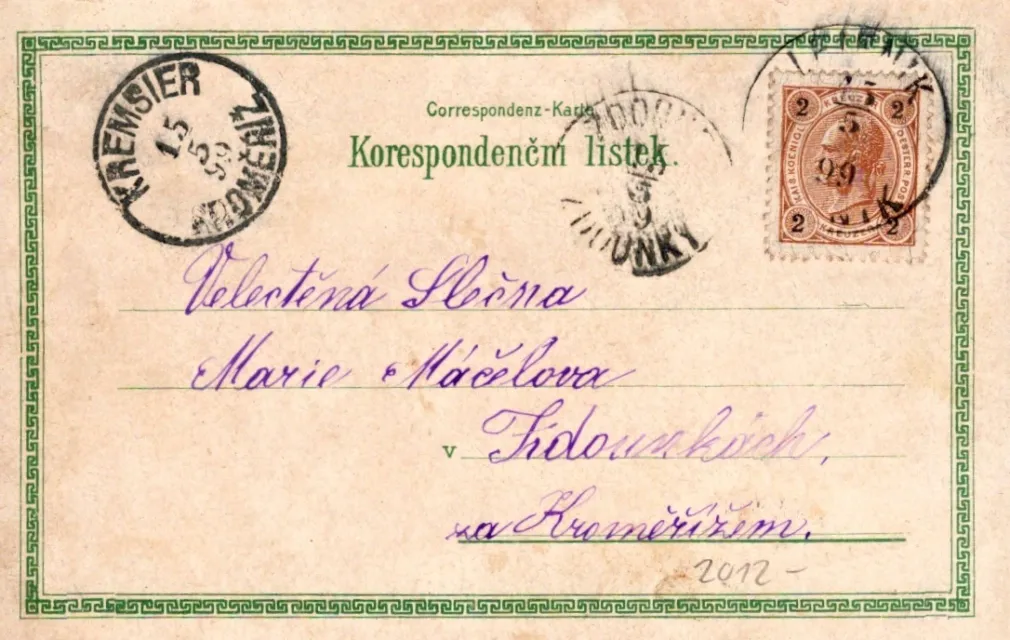 KREMSIER
15
5
99
KROMĚŘÍŽ
Correspondenz-Karte
Korespondenční lístek.
ZDOUNKY
LEIPNIK
15
5
99
2 KREUZER 2
KAIS. KOENIGL. OESTERR. POST
2 KREUZER 2
Velectěná Slečna
Marie Máčelova
v Zdounkách,
za Kroměřížem.
2012-